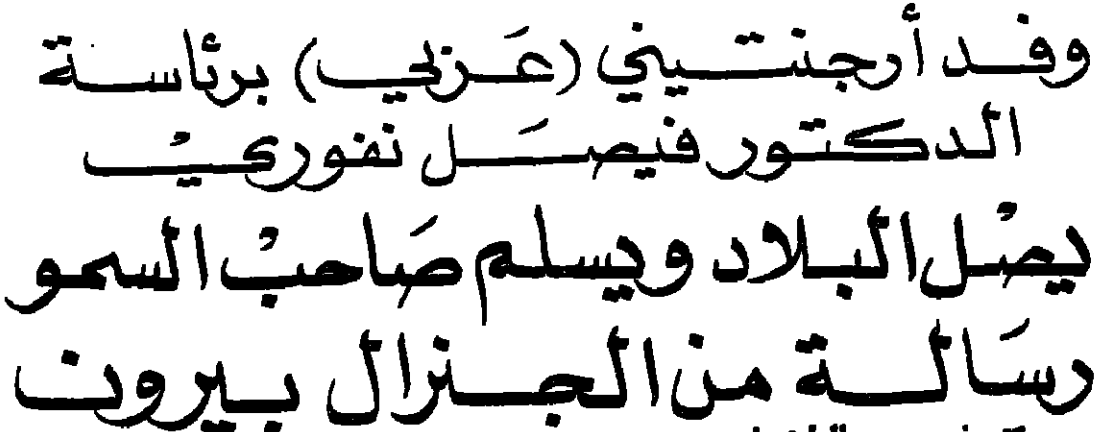 وفد أرجنتيني (عربي) برئاسة
الدكتور فيصل نفوري
يصل البلاد ويسلم صاحب السمو
رسالة من الجنرال بيرون